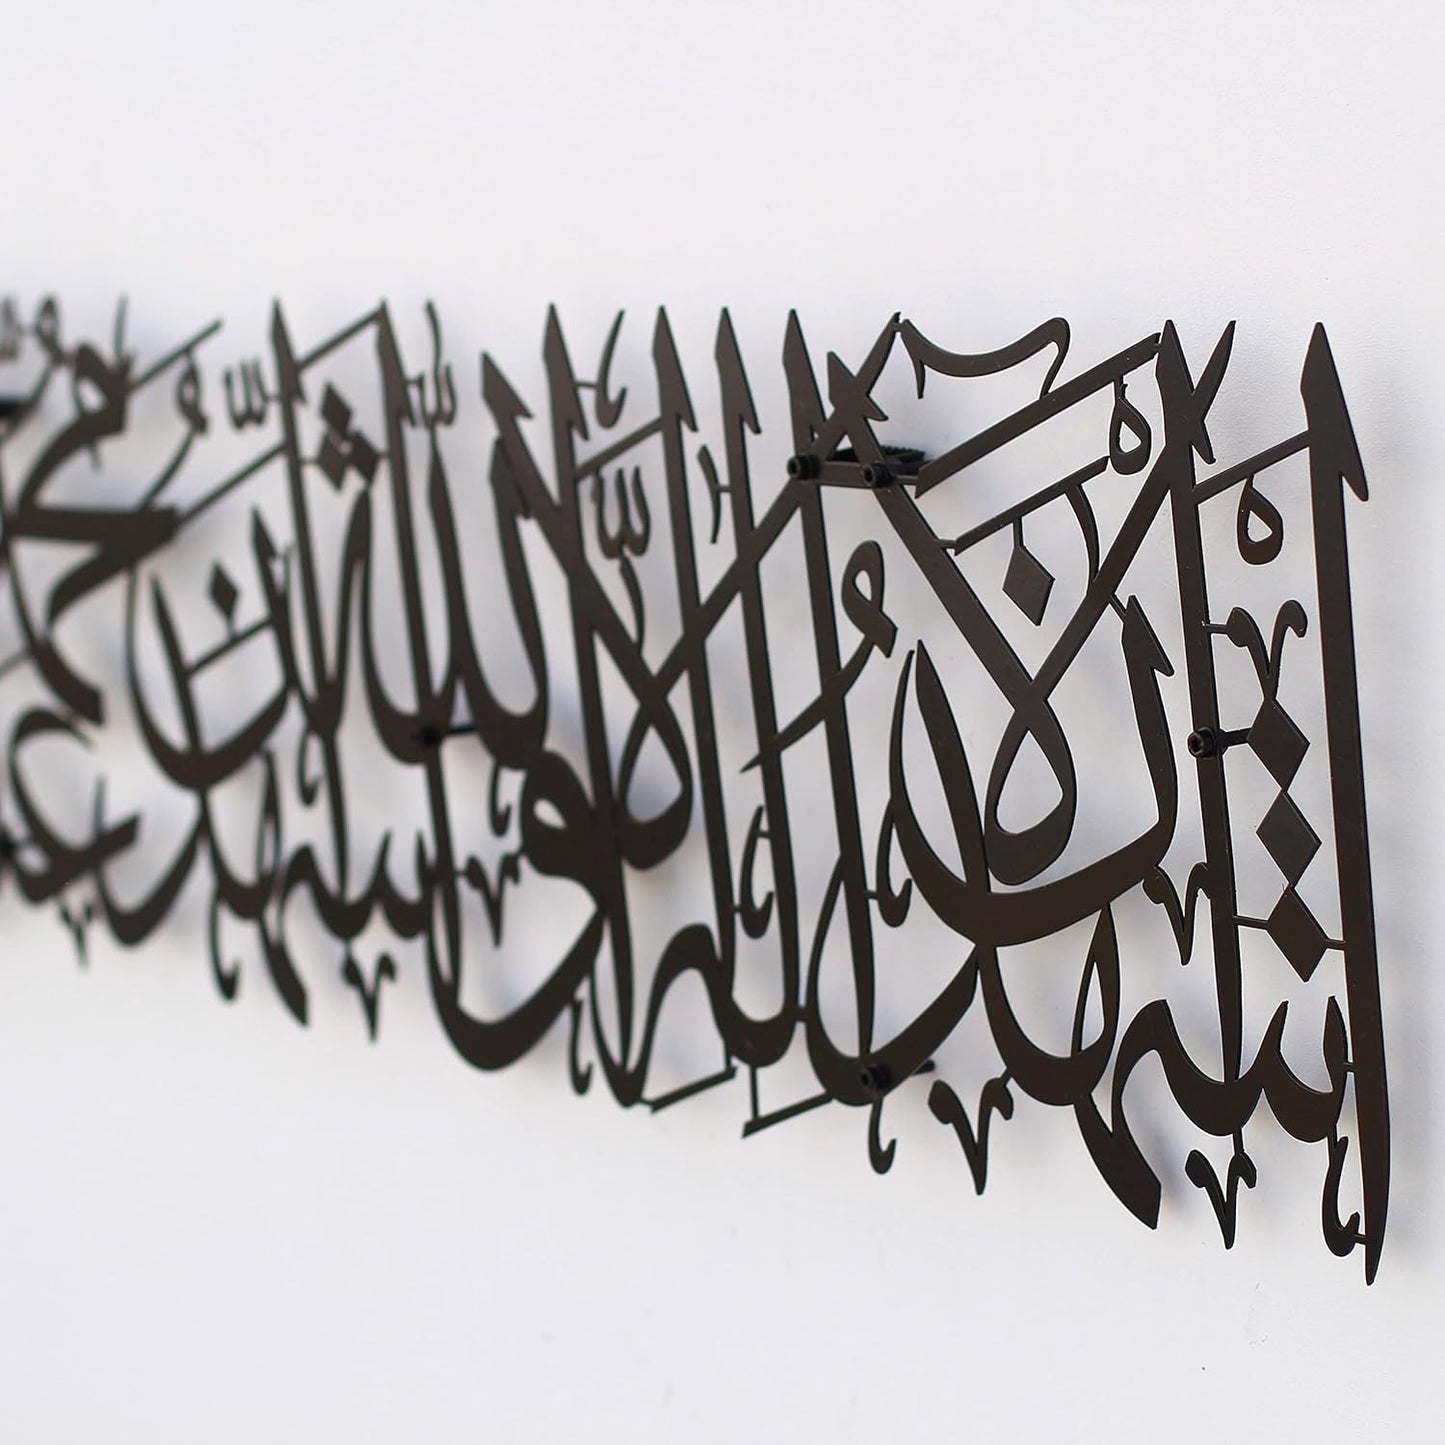 اشهد ان لا اله الا الله واشهد ان